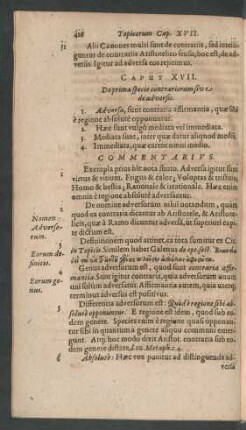 418 Topicorum Cap. XVII.
31 Alii Canones multi sunt de contrariis, sed intelli-
guntur de contrariis Aristotelico sensu, hoc est, de ad-
versis. Igitur ad adversa eos rejicimus.
CAPUT XVII.
De prima specie contrariorum sive
de adversis.
1. Adversa, sunt contraria affirmantia, quæ sibi
è regione absolutè opponuntur.
2. Hæc sunt vulgò mediata vel immediata.
3. Mediata sunt, inter quæ datur aliquod medium.
4. Immediata, quæ carent omni medio.
COMMENTARIUS.
Exempla prius hîc nota sunto. Adversa igitur sunt
virtus & vitium. Frigus & calor; Voluptas & tristitia;
Homo & bestia; Rationale & irrationale. Hæc enim
omnia è regione absolutè adversantur.
De nomine adversorum nihil notandum, quàm
quod ea contraria dicantur ab Aristotele, & Aristote-
licis, quæ à Ramo dicuntur adversa, ut superiori capi-
te dictum est.
Nomen
Adverso-
rum.
Definitionem quod attinet, ea tota sumitur ex Cic.
in Topicis. Similem habet Galenus
Eorum de-
finitio.
Genus adversorum est, quod sunt contraria affir-
mantia. Sunt igitur contraria, quia adversantur unum
uni solùm adversatur. Affirmantia autem, quia uterq;
terminus adversus est positivus.
Eorum ge-
nus.
Differentia adversorum est: Quod è regione sibi ab-
solutè opponuntur. E regione est idem, quod sub eo-
dem genere. Species enim è regione quasi opponun-
tur sibi in quantum à genere aliquo communi effe-
runtur. Atq; hoc modo dixit Aristot. contraria sub eo-
dem genere distare, l. 10. Metaph. c. 4.
6 Absolutè: Hæc vox ponitur ad distinguenda ad-
versa